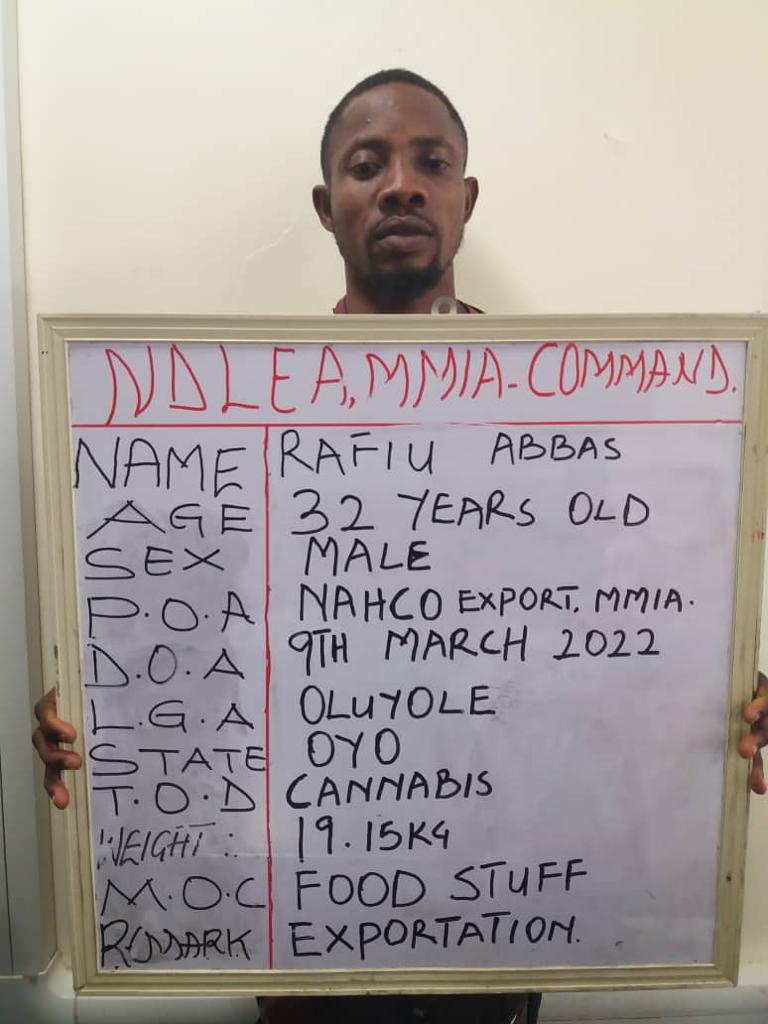 NDLEA, MMIA-COMMAND.
NAME RAFIU ABBAS
AGE 32 YEARS OLD
SEX MALE
P.O.A NAHCO EXPORT, MMIA.
D.O.A 9TH MARCH 2022
L.G.A OLUYOLE
STATE OYO
T.O.D CANNABIS
WEIGHT 19.15KG
M.O.C FOOD STUFF
REMARK EXPORTATION.